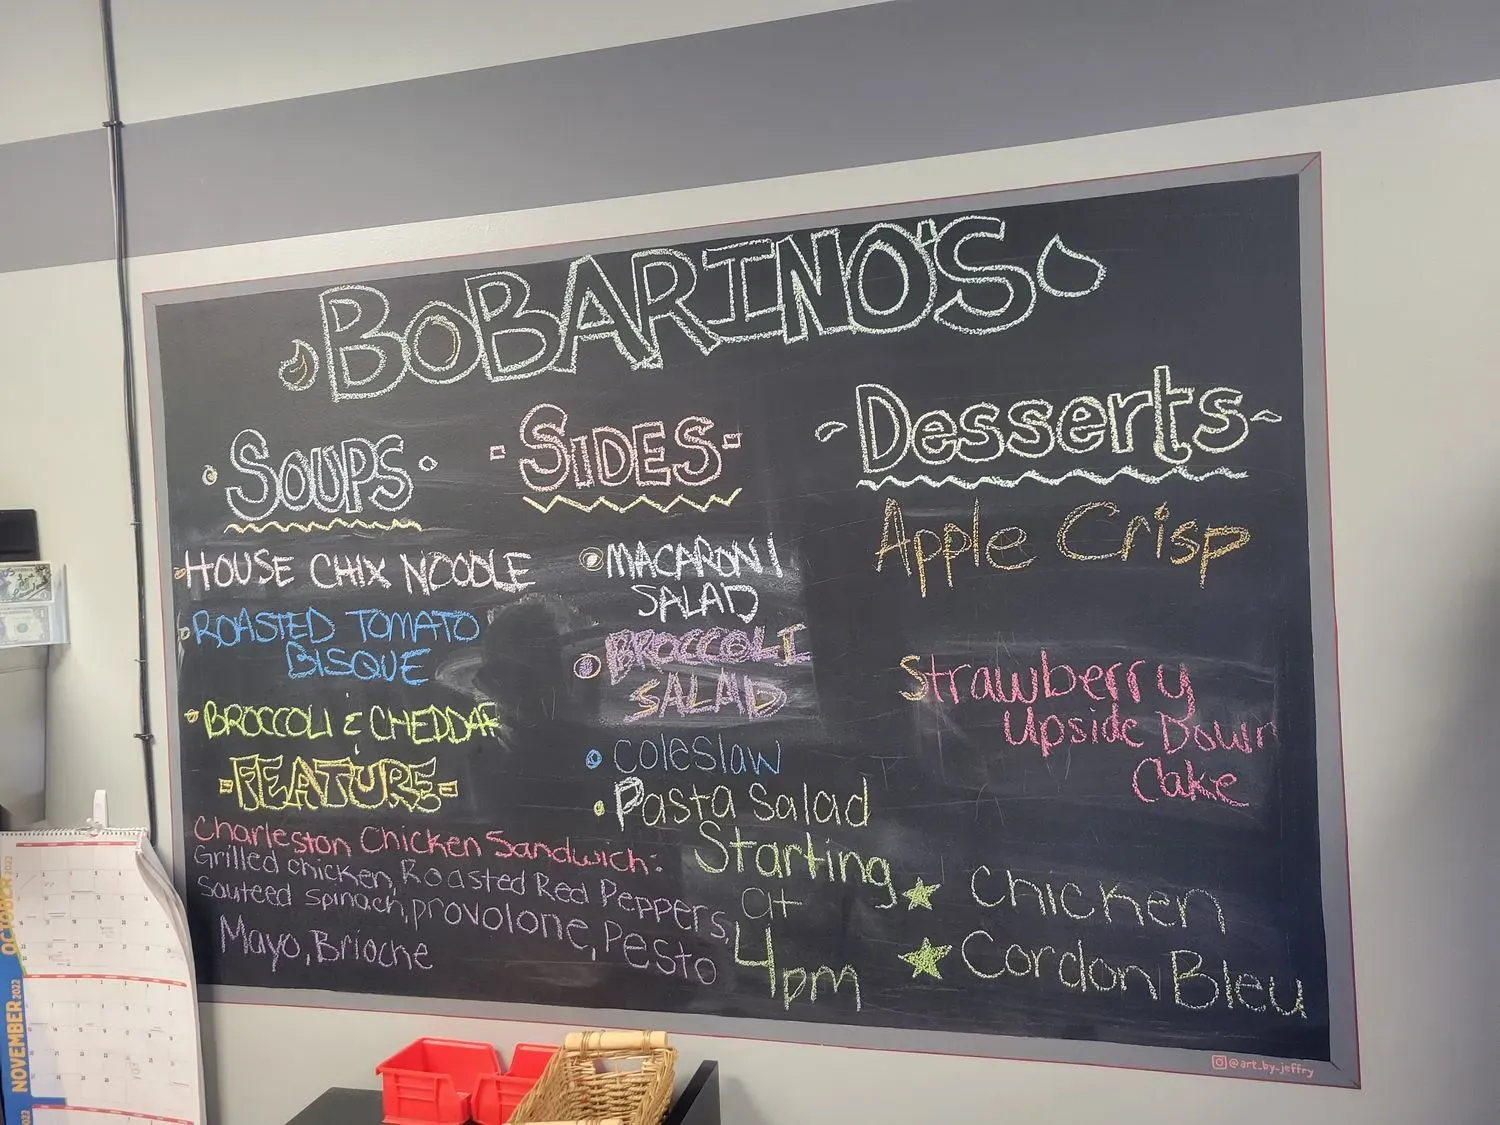 BOBARINO'S
SOUPS
HOUSE CHIX NOODLE
ROASTED TOMATO
BISQUE
BROCCOLI & CHEDDAR
FEATURE
Charleston Chicken Sandwich:
Grilled chicken, Roasted Red Peppers,
Sauteed Spinach, provolone, Pesto
Mayo, Brioche
SIDES
MACARONI
SALAD
BROCCOLI
SALAD
coleslaw
Pasta Salad
Desserts
Apple Crisp
Strawberry
Upside Down
Cake
Starting
at
4pm
Chicken
Cordon Bleu
@art_by_jeffry
OCTOBER 2022
NOVEMBER 2022